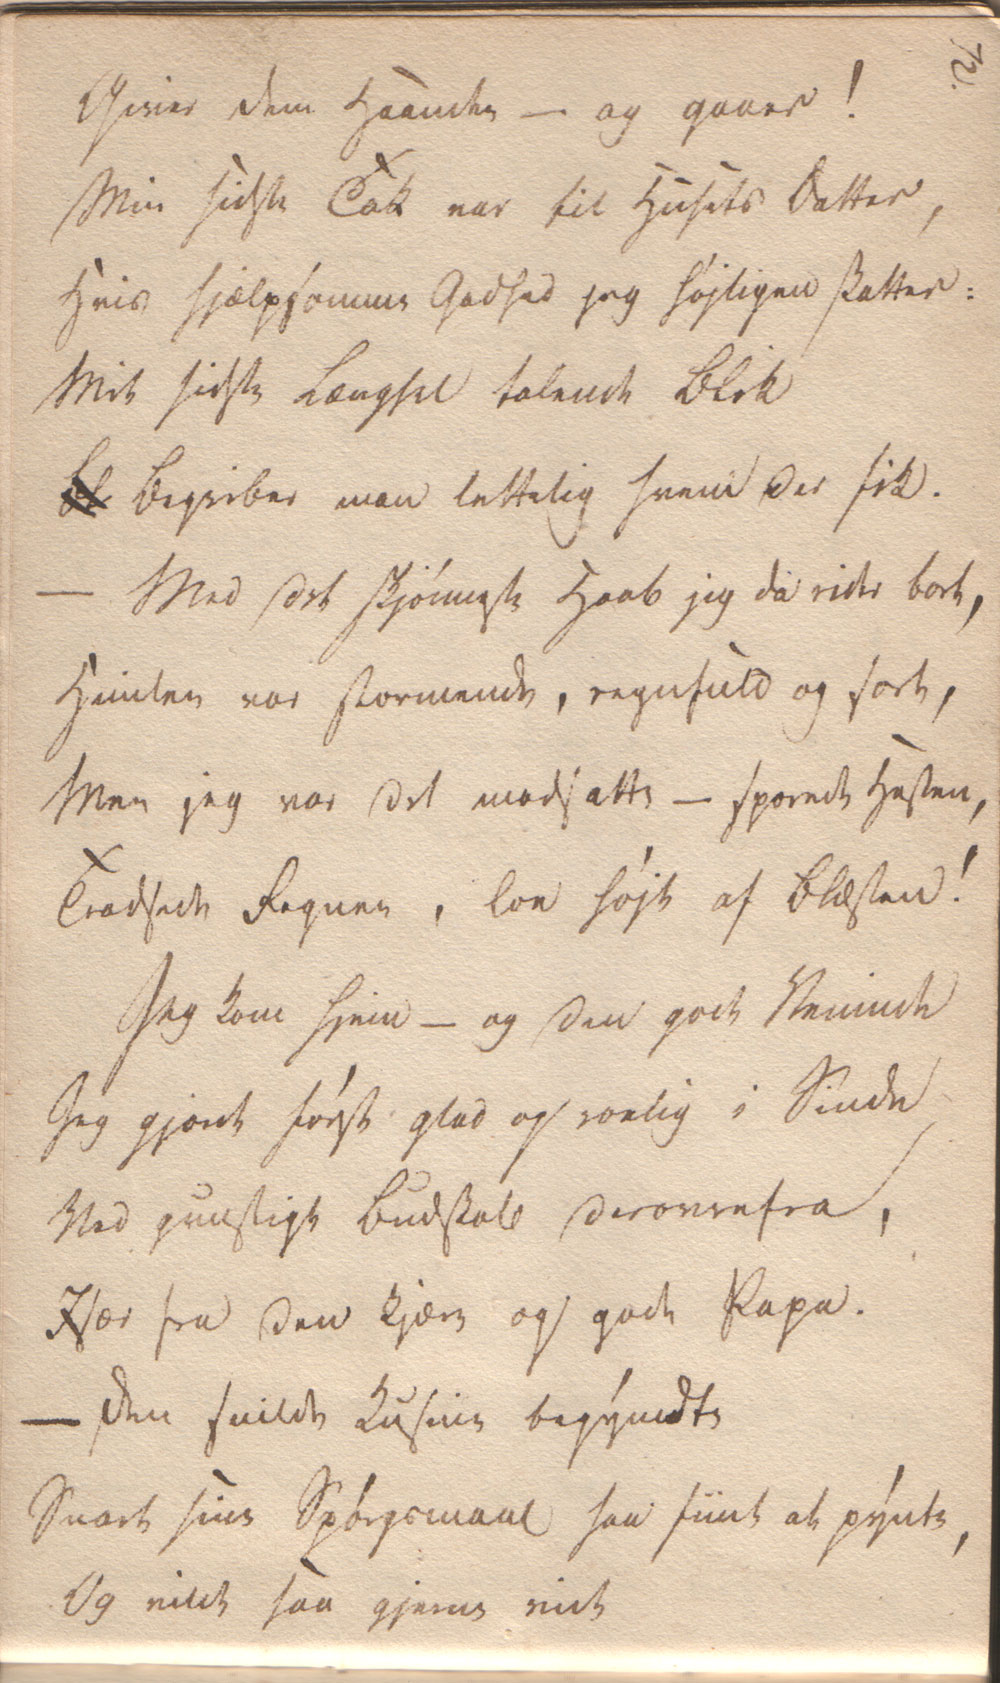 72.
Giver dem Haanden — og gaaer!
Min sidste Tak var til Husets Datter,
Hvis hjælpsomme Godhed jeg højligen skatter:
Mit sidste Længsel talende Blik
Begriber man lettelig hvem der fik.
— Med det skjønneste Haab jeg da rider bort,
Himlen var stormende, regnfuld og sort,
Men jeg var det modsatte — sporede Hesten,
Trodsede Regnen, loe højt af Blæsten!
Jeg kom hjem — og den gode Veninde
Jeg gjorde først glad og roelig i Sinde
Ved gunstigt Budskab derovrefra,
Især fra den kjære og gode Papa.
— Den snilde Kusine begyndte
Snart sine Spørgsmaal saa fiint at pynte,
Og vilde saa gjerne vide